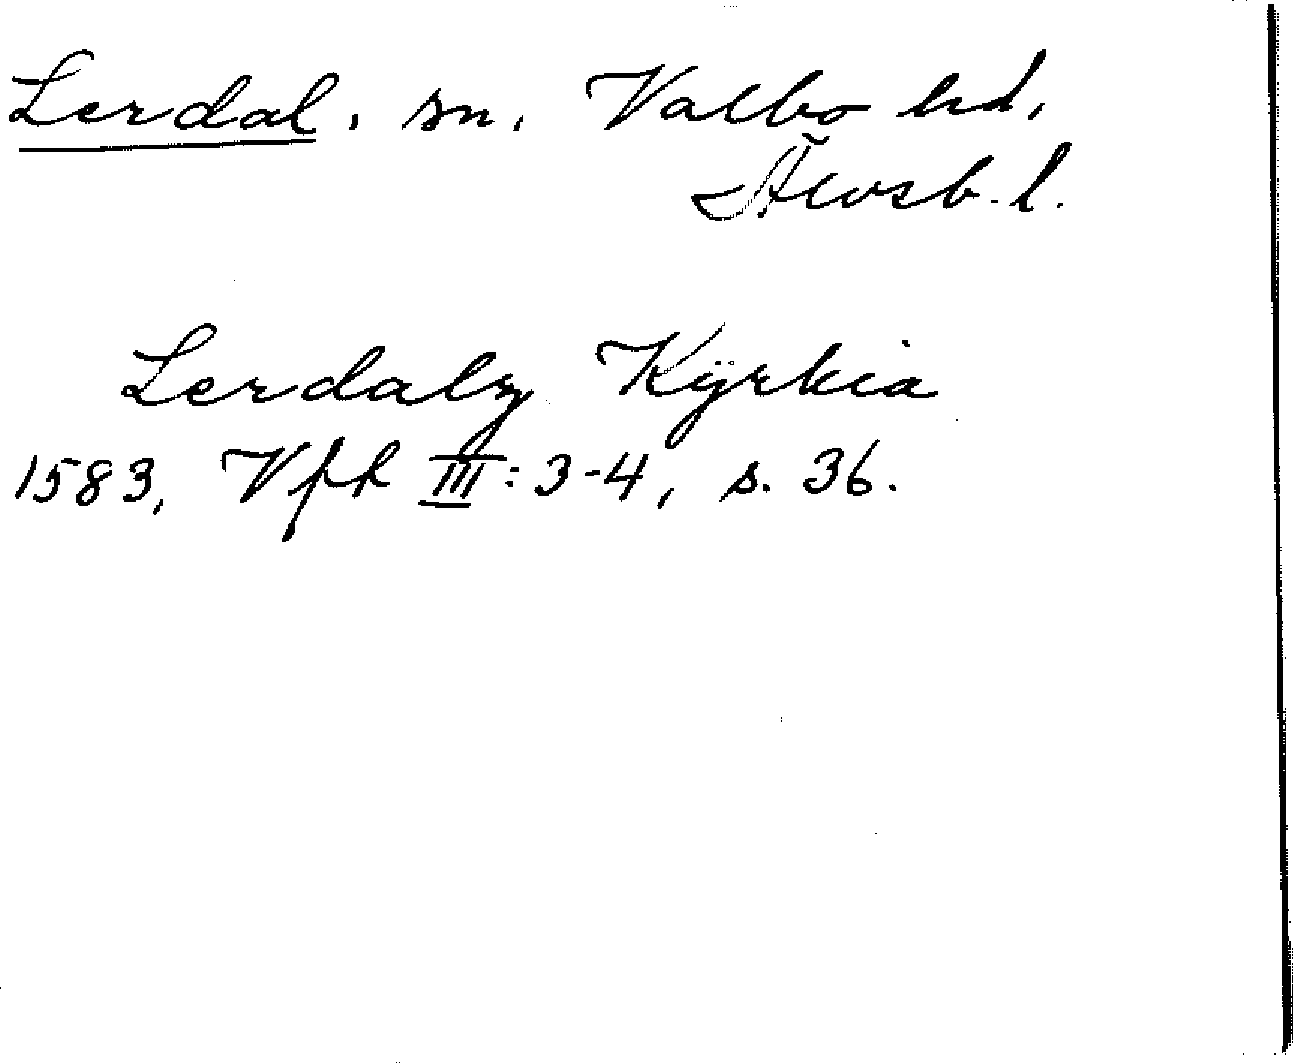 Lerdal, sn, Valbo hd,
Älvsb. l.
Lerdalz Kÿrkia
1583, Vfk III:3-4, s. 36.